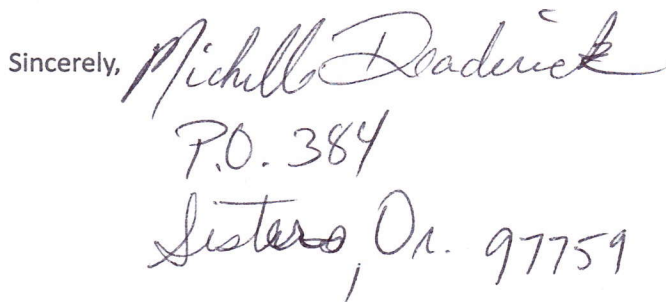 Sincerely, Michelle Deaderick
P.O. 384
Sisters, Or. 97759